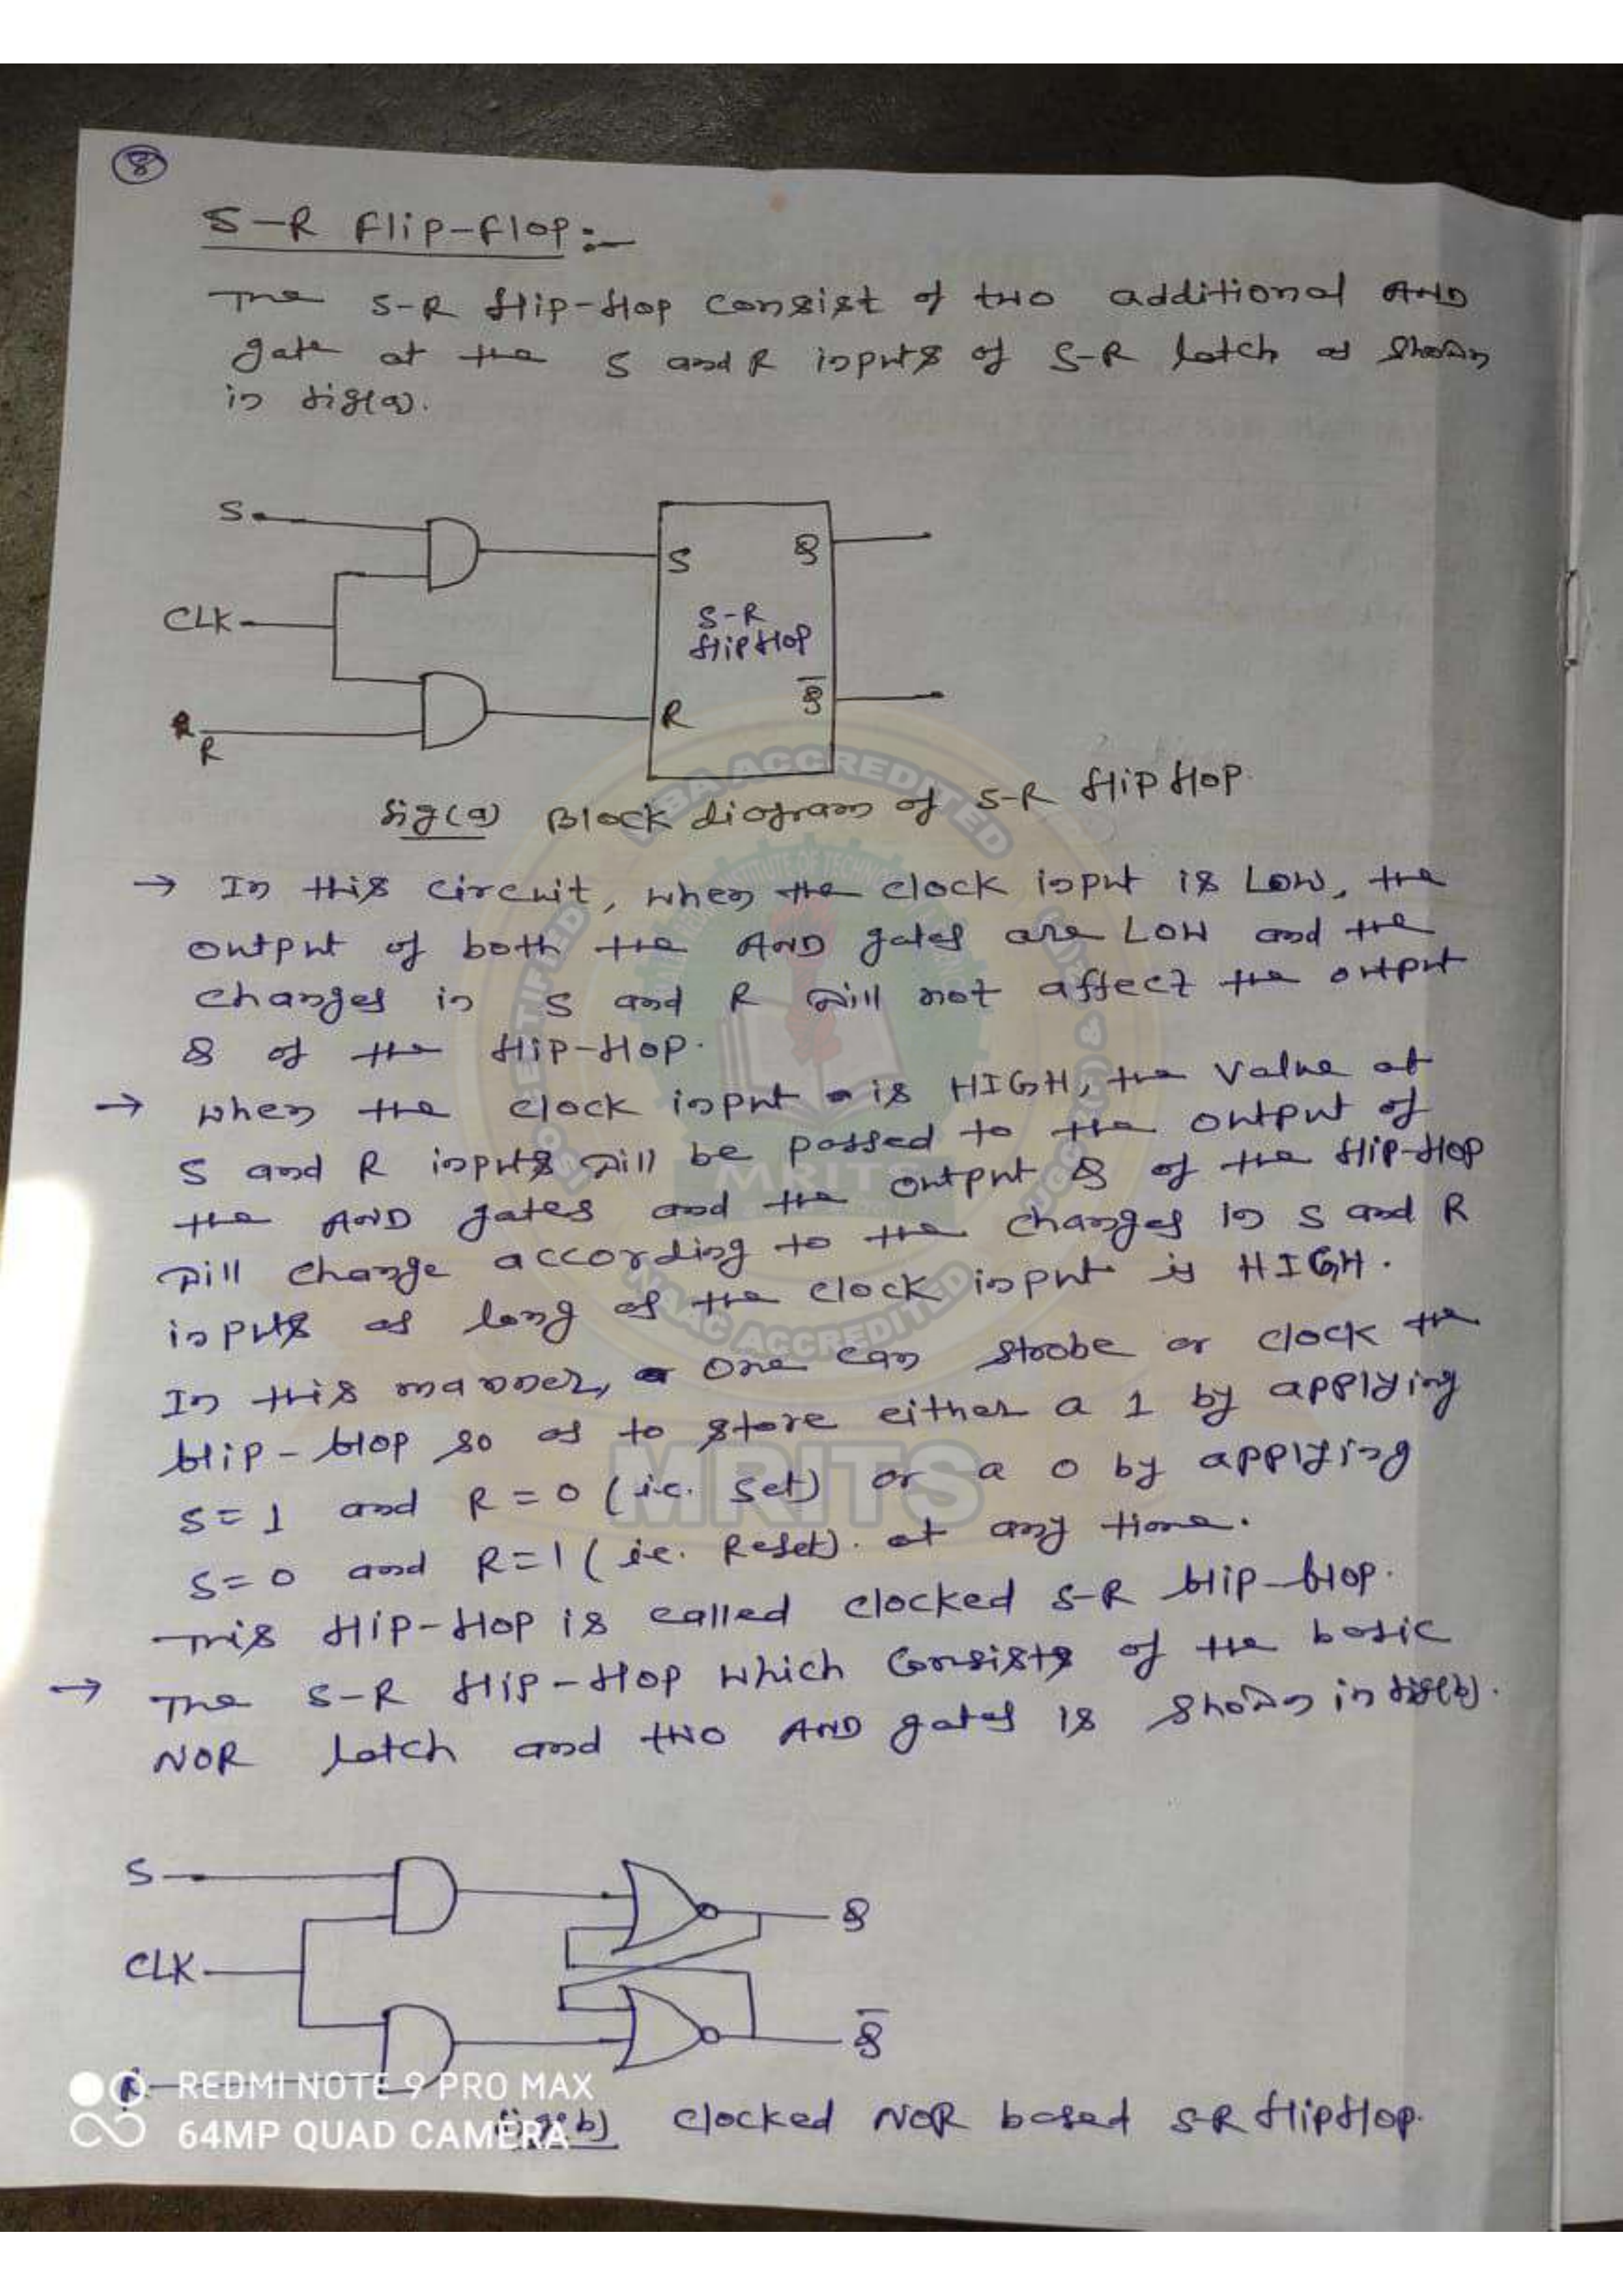 8
S-R Flip-Flop:-
The S-R flip-flop consist of two additional AND
gate at the S and R inputs of S-R latch as shown
in fig(a).
S
S Q
CLK
S-R
flipflop
R
R Q̅
fig(a) Block diagram of S-R flipflop
→ In this circuit, when the clock input is LOW, the
output of both the AND gates are LOW and the
changes in S and R will not affect the output
Q of the flip-flop.
→ when the clock input is HIGH, the value at
S and R inputs will be passed to the output of
the AND gates and the output Q of the flip-flop
will change according to the changes in S and R
inputs as long as the clock input is HIGH.
In this manner, one can strobe or clock the
flip-flop so as to store either a 1 by applying
S=1 and R=0 (i.e. Set) or a 0 by applying
S=0 and R=1 (i.e. Reset). at any time.
This flip-flop is called clocked S-R flip-flop.
→ The S-R flip-flop which consists of the basic
NOR latch and two AND gates is shown in fig(b).
S
Q
CLK
Q̅
R
fig(b) clocked NOR based S-R flipflop.
REDMI NOTE 9 PRO MAX
64MP QUAD CAMERA
NBA ACCREDITED
NAAC ACCREDITED
MRITS
MRITS